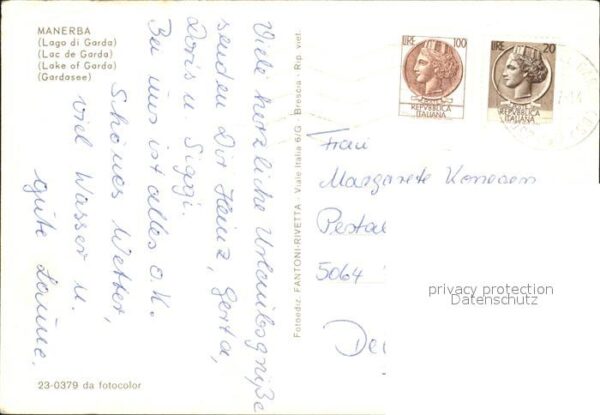 MANERBA
(Lago di Garda)
(Lac de Garda)
(Lake of Garda)
(Gardasee)
Viele herzliche Urlaubsgrüße
senden Dir Heinz, Gerta,
Doris u. Siggi.
Bei uns ist alles o.K.
Schönes Wetter,
viel Wasser u.
gute Laune.
23-0379 da fotocolor
Fotoediz. FANTONI-RIVETTA - Viale Italia 6/G - Brescia - Rip. viet.
LIRE 100
REPVBBLICA
ITALIANA
LIRE 20
REPVBBLICA
ITALIANA
Frau
Margarete
Pestal
5064
De
privacy protection
Datenschutz